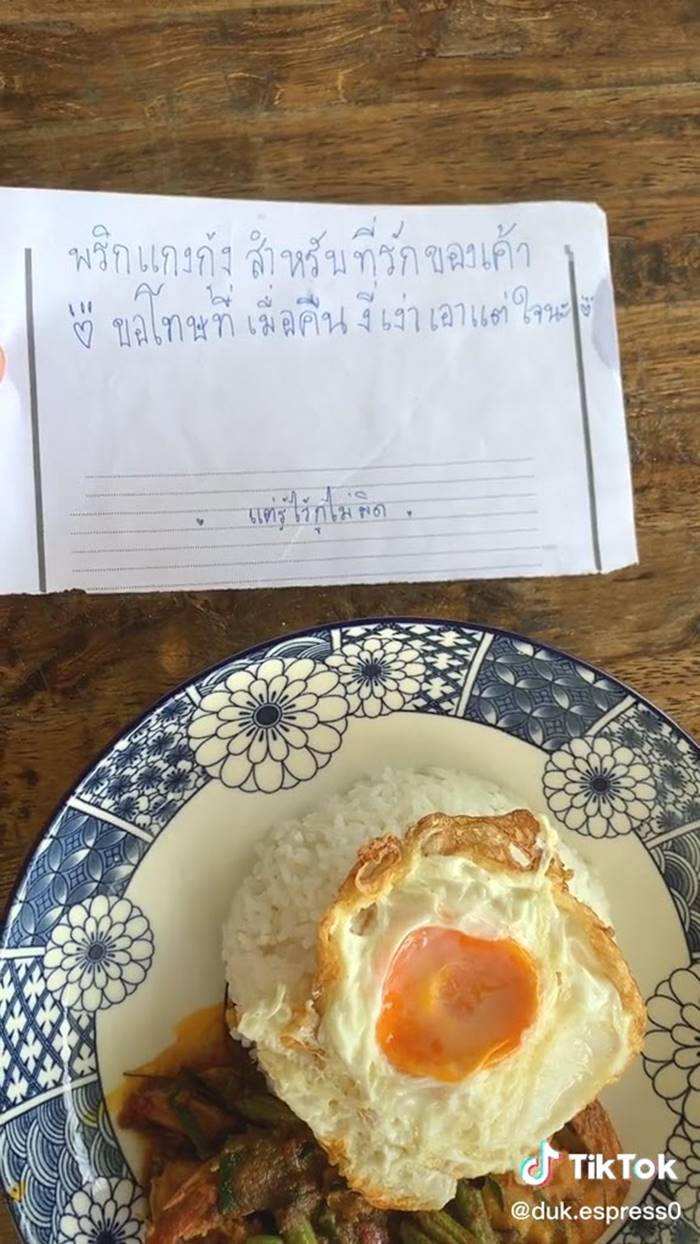 พริกแกงกุ้ง สำหรับที่รักของเค้า
ขอโทษที่ เมื่อคืน งี่เง่า เอาแต่ใจนะ
แต่รู้ไว้กูไม่ผิด
TikTok
@duk.espress0